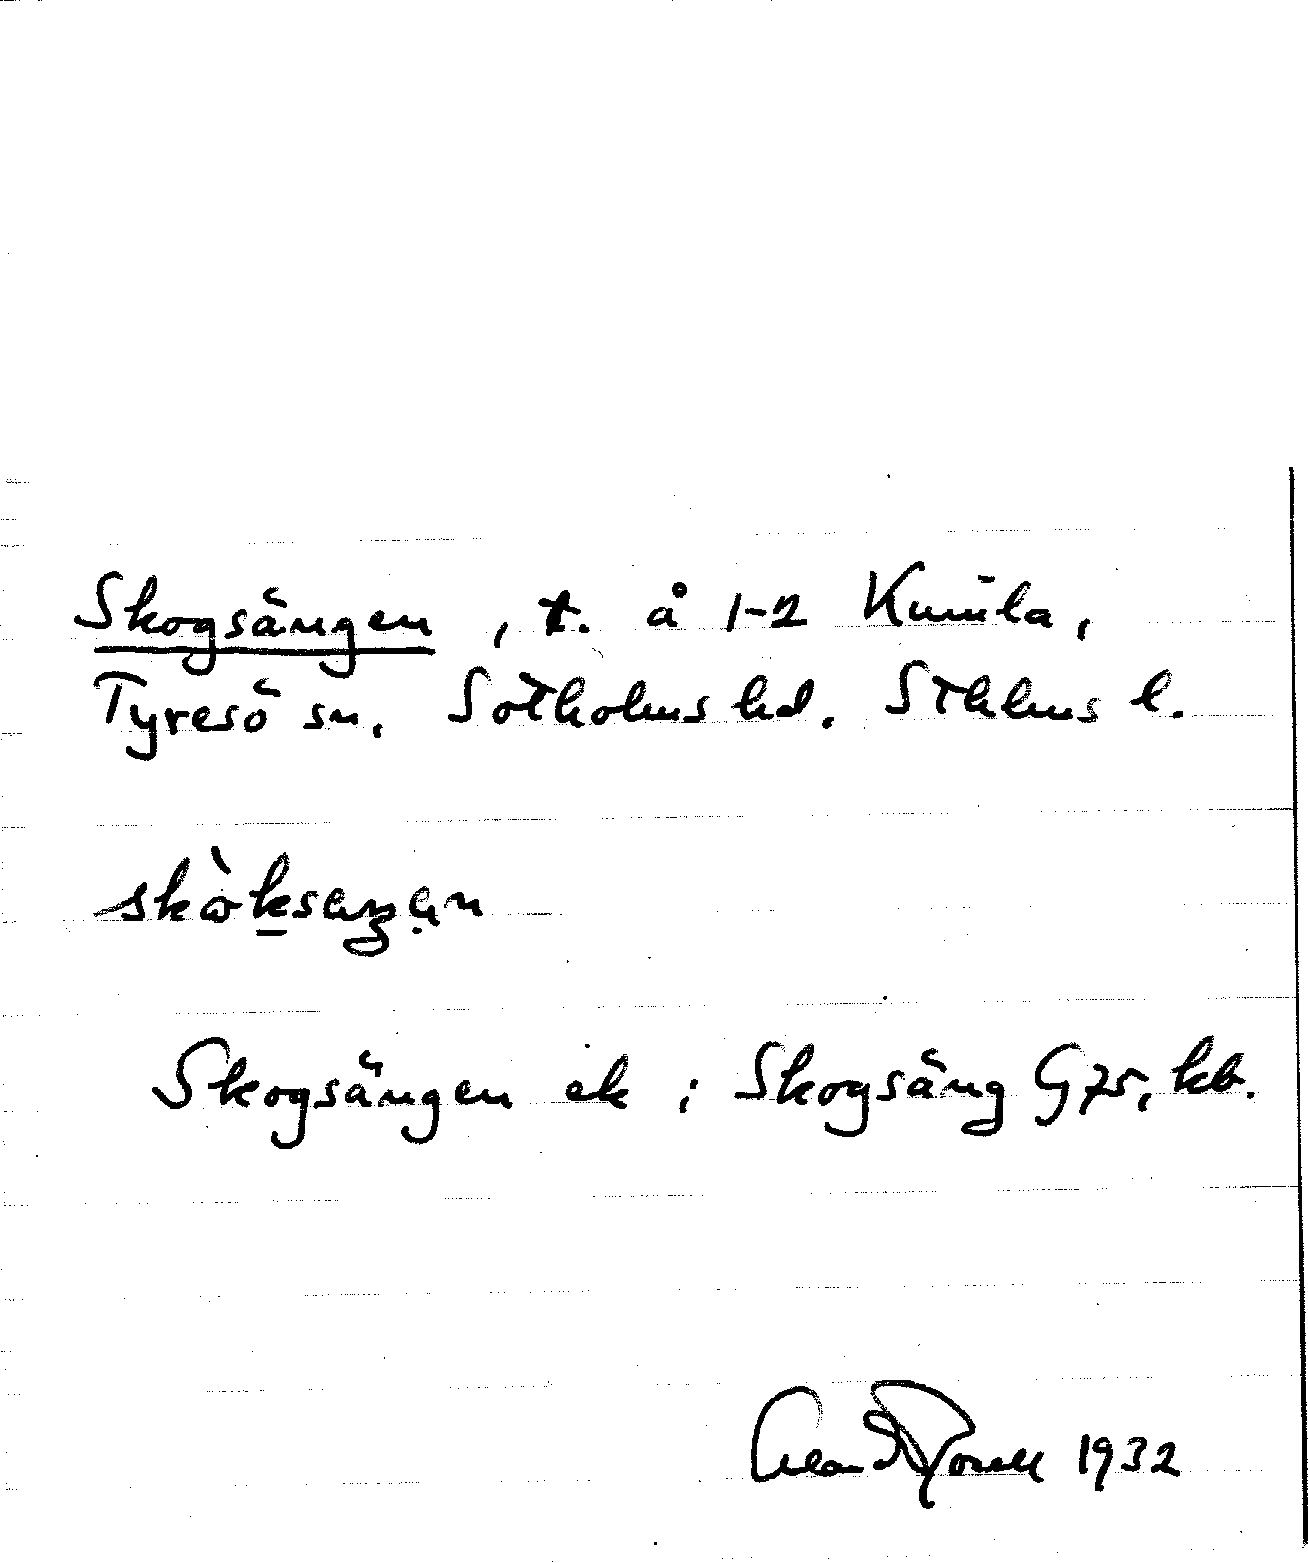 Skogsängen, t. å 1-2 Kumla,
Tyresö sn, Sotholms hd. Sthlms l.
skòksaŋən
Skogsängen ek ; Skogsäng G 75, kb.
1932